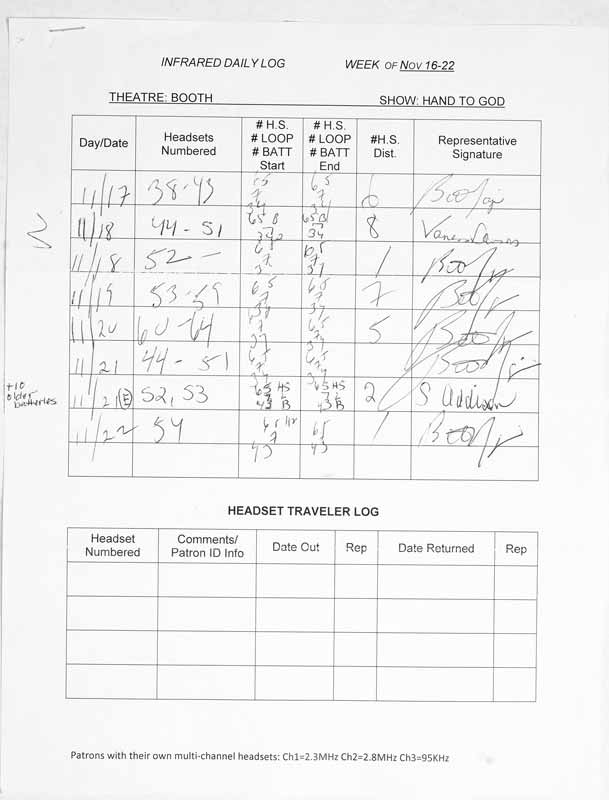 INFRARED DAILY LOG WEEK OF NOV 16-22
THEATRE: BOOTH SHOW: HAND TO GOD
Day/Date Headsets Numbered # H.S. # LOOP # BATT Start # H.S. # LOOP # BATT End #H.S. Dist. Representative Signature
11/17 38-43 65 7 34 65 7 34 6
11/18 44-51 65 8 7 65 8 7 34 8
11/18 52- 65 7 37 65 7 37 1
11/19 53-59 65 7 65 7 37 7
11/20 60-64 65 7 37 65 7 37 5
11/21 44-51 65 7 65 7
+10 older batteries
11/21 (E) 52, 53 65 HS 7 L 43 B 65 HS 7 L 43 B 2 S Addison
11/22 54 65 7 43 65 43 1
HEADSET TRAVELER LOG
Headset Numbered Comments/ Patron ID Info Date Out Rep Date Returned Rep
Patrons with their own multi-channel headsets: Ch1=2.3MHz Ch2=2.8MHz Ch3=95KHz